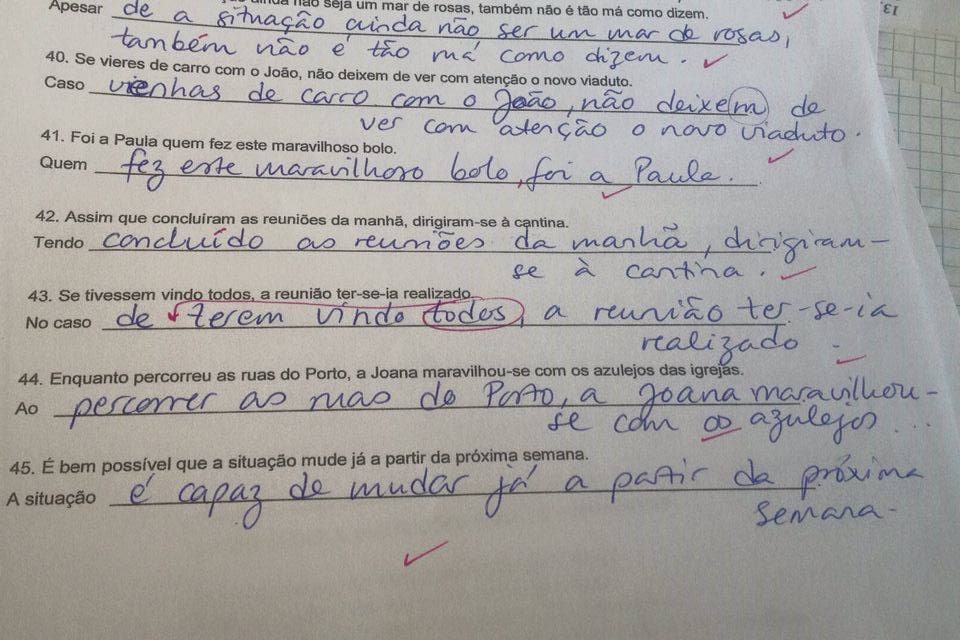 ainda não seja um mar de rosas, também não é tão má como dizem.
Apesar de a situação ainda não ser um mar de rosas,
também não é tão má como dizem.
40. Se vieres de carro com o João, não deixem de ver com atenção o novo viaduto.
Caso venhas de carro com o João, não deixem de
ver com atenção o novo viaduto.
41. Foi a Paula quem fez este maravilhoso bolo.
Quem fez este maravilhoso bolo, foi a Paula.
42. Assim que concluíram as reuniões da manhã, dirigiram-se à cantina.
Tendo concluído as reuniões da manhã, dirigiram-
se à cantina.
43. Se tivessem vindo todos, a reunião ter-se-ia realizado.
No caso de terem vindo todos, a reunião ter-se-ia
realizado.
44. Enquanto percorreu as ruas do Porto, a Joana maravilhou-se com os azulejos das igrejas.
Ao percorrer as ruas do Porto, a Joana maravilhou-
se com os azulejos ...
45. É bem possível que a situação mude já a partir da próxima semana.
A situação é capaz de mudar já a partir da próxima
semana.
13.